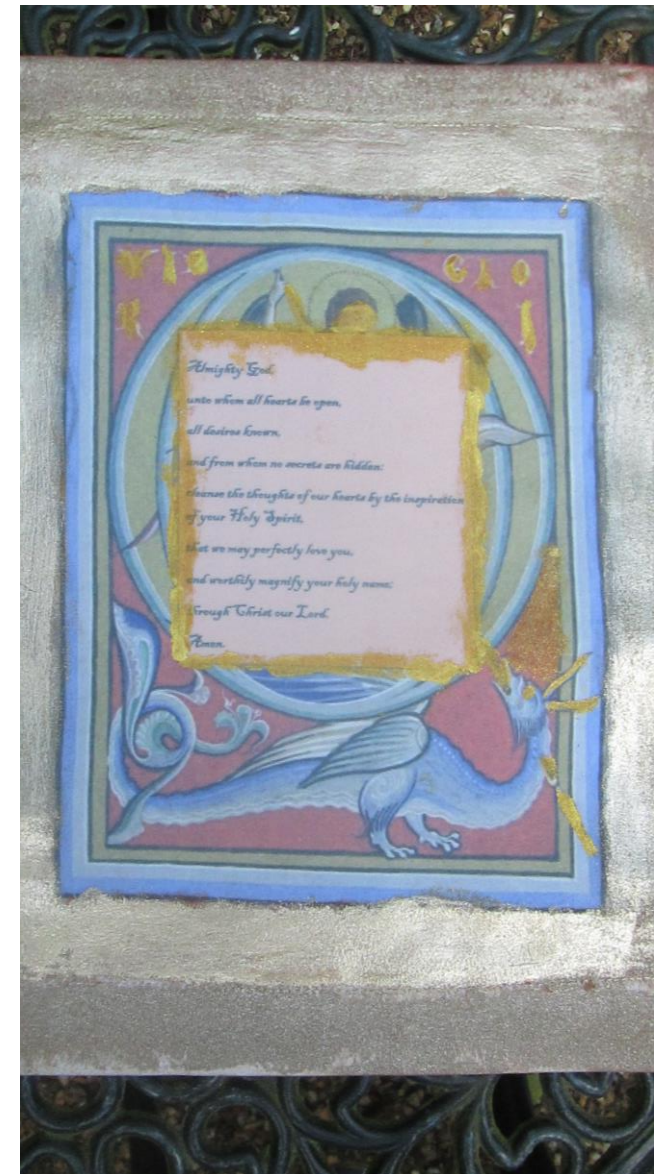 Almighty God,
unto whom all hearts be open,
all desires known,
and from whom no secrets are hidden:
cleanse the thoughts of our hearts by the inspiration
of your Holy Spirit,
that we may perfectly love you,
and worthily magnify your holy name;
through Christ our Lord.
Amen.